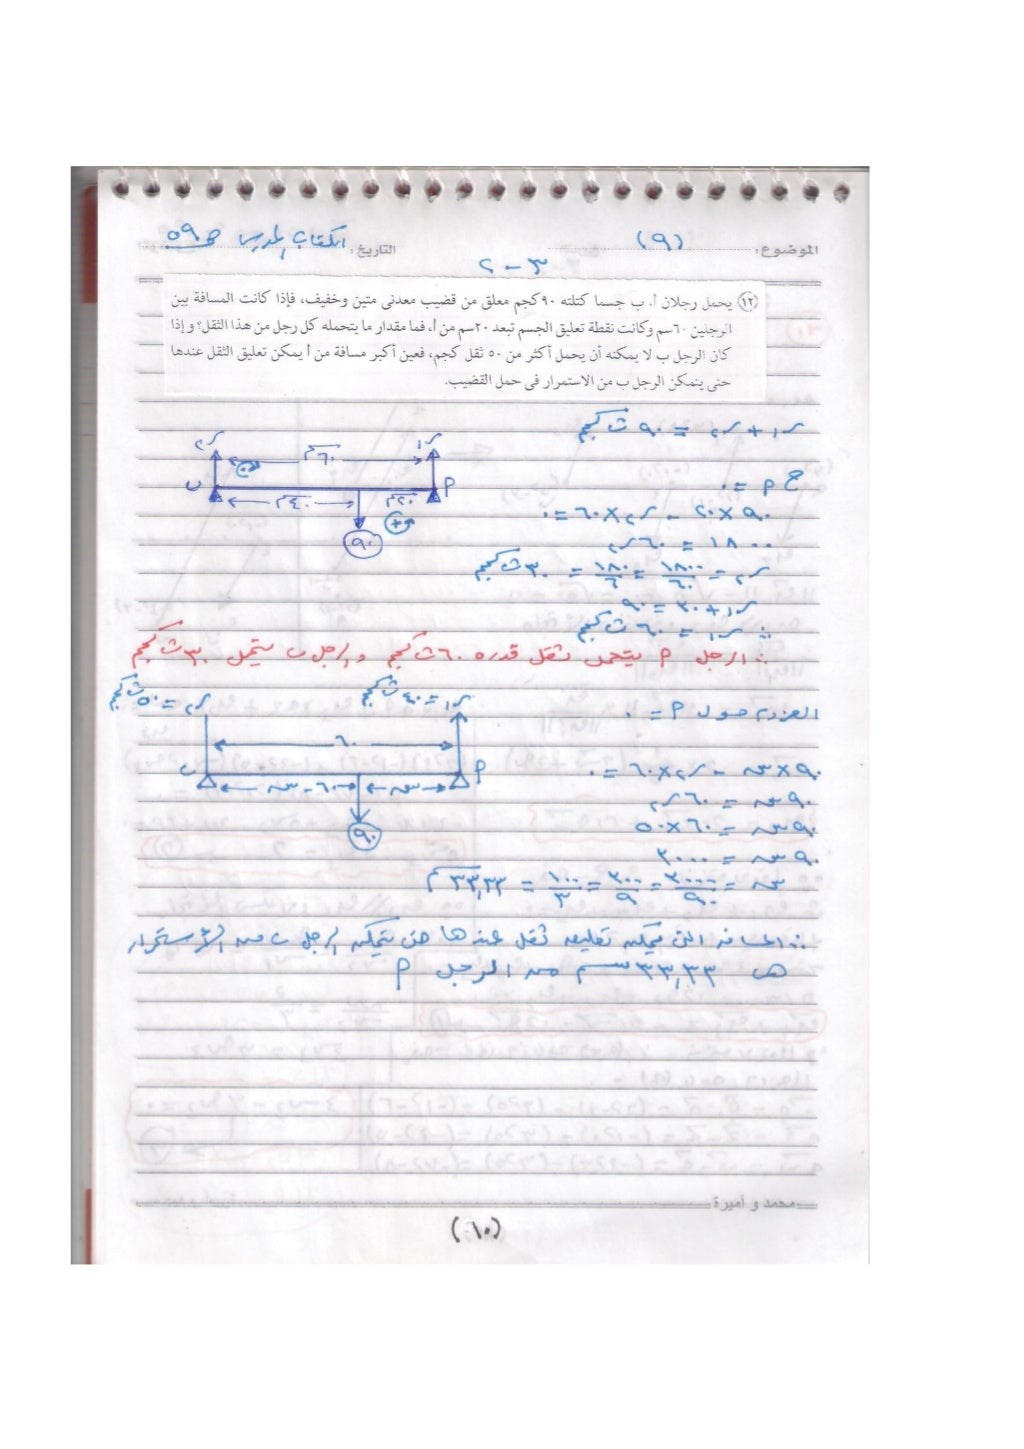 الموضوع: (٩) التاريخ: الكتاب المدرسى ص ٥٩
٣ - ٢
(١٢) يحمل رجلان أ، ب جسما كتلته ٩٠ كجم معلق من قضيب معدنى متين وخفيف، فإذا كانت المسافة بين
الرجلين ٦٠ سم وكانت نقطة تعليق الجسم تبعد ٢٠ سم من أ، فما مقدار ما يتحمله كل رجل من هذا الثقل؟ وإذا
كان الرجل ب لا يمكنه أن يحمل أكثر من ٥٠ ثقل كجم، فعين أكبر مسافة من أ يمكن تعليق الثقل عندها
حتى يتمكن الرجل ب من الاستمرار فى حمل القضيب.
ر١ + ر٢ = ٩٠ ث كجم
ر٢ ر١
٦٠ سم
ب أ
٤٠ سم ٢٠ سم
+
٩٠
ج أ = ٠
٩٠ × ٢٠ - ر٢ × ٦٠ = ٠
١٨٠٠ = ٦٠ ر٢
ر٢ = ١٨٠٠/٦٠ = ١٨٠/٦ = ٣٠ ث كجم
ر١ + ٣٠ = ٩٠
∴ ر١ = ٦٠ ث كجم
∴ الرجل أ يتحمل ثقل قدره ٦٠ ث كجم والرجل ب يتحمل ٣٠ ث كجم
ر٢ = ٥٠ ث كجم ر١ = ٤٠ ث كجم
٦٠
ب أ
٦٠ - س س
٩٠
العزوم حول أ = ٠
٩٠ × س - ر٢ × ٦٠ = ٠
٩٠ س = ٦٠ ر٢
٩٠ س = ٦٠ × ٥٠
٩٠ س = ٣٠٠٠
س = ٣٠٠٠/٩٠ = ٣٠٠/٩ = ١٠٠/٣ = ٣٣,٣٣ سم
∴ المسافة التى يمكن تعليق ثقل عندها حتى يتمكن الرجل ب من الأستمرار
هى ٣٣,٣٣ سم من الرجل أ
محمد و أميرة
(١٠)